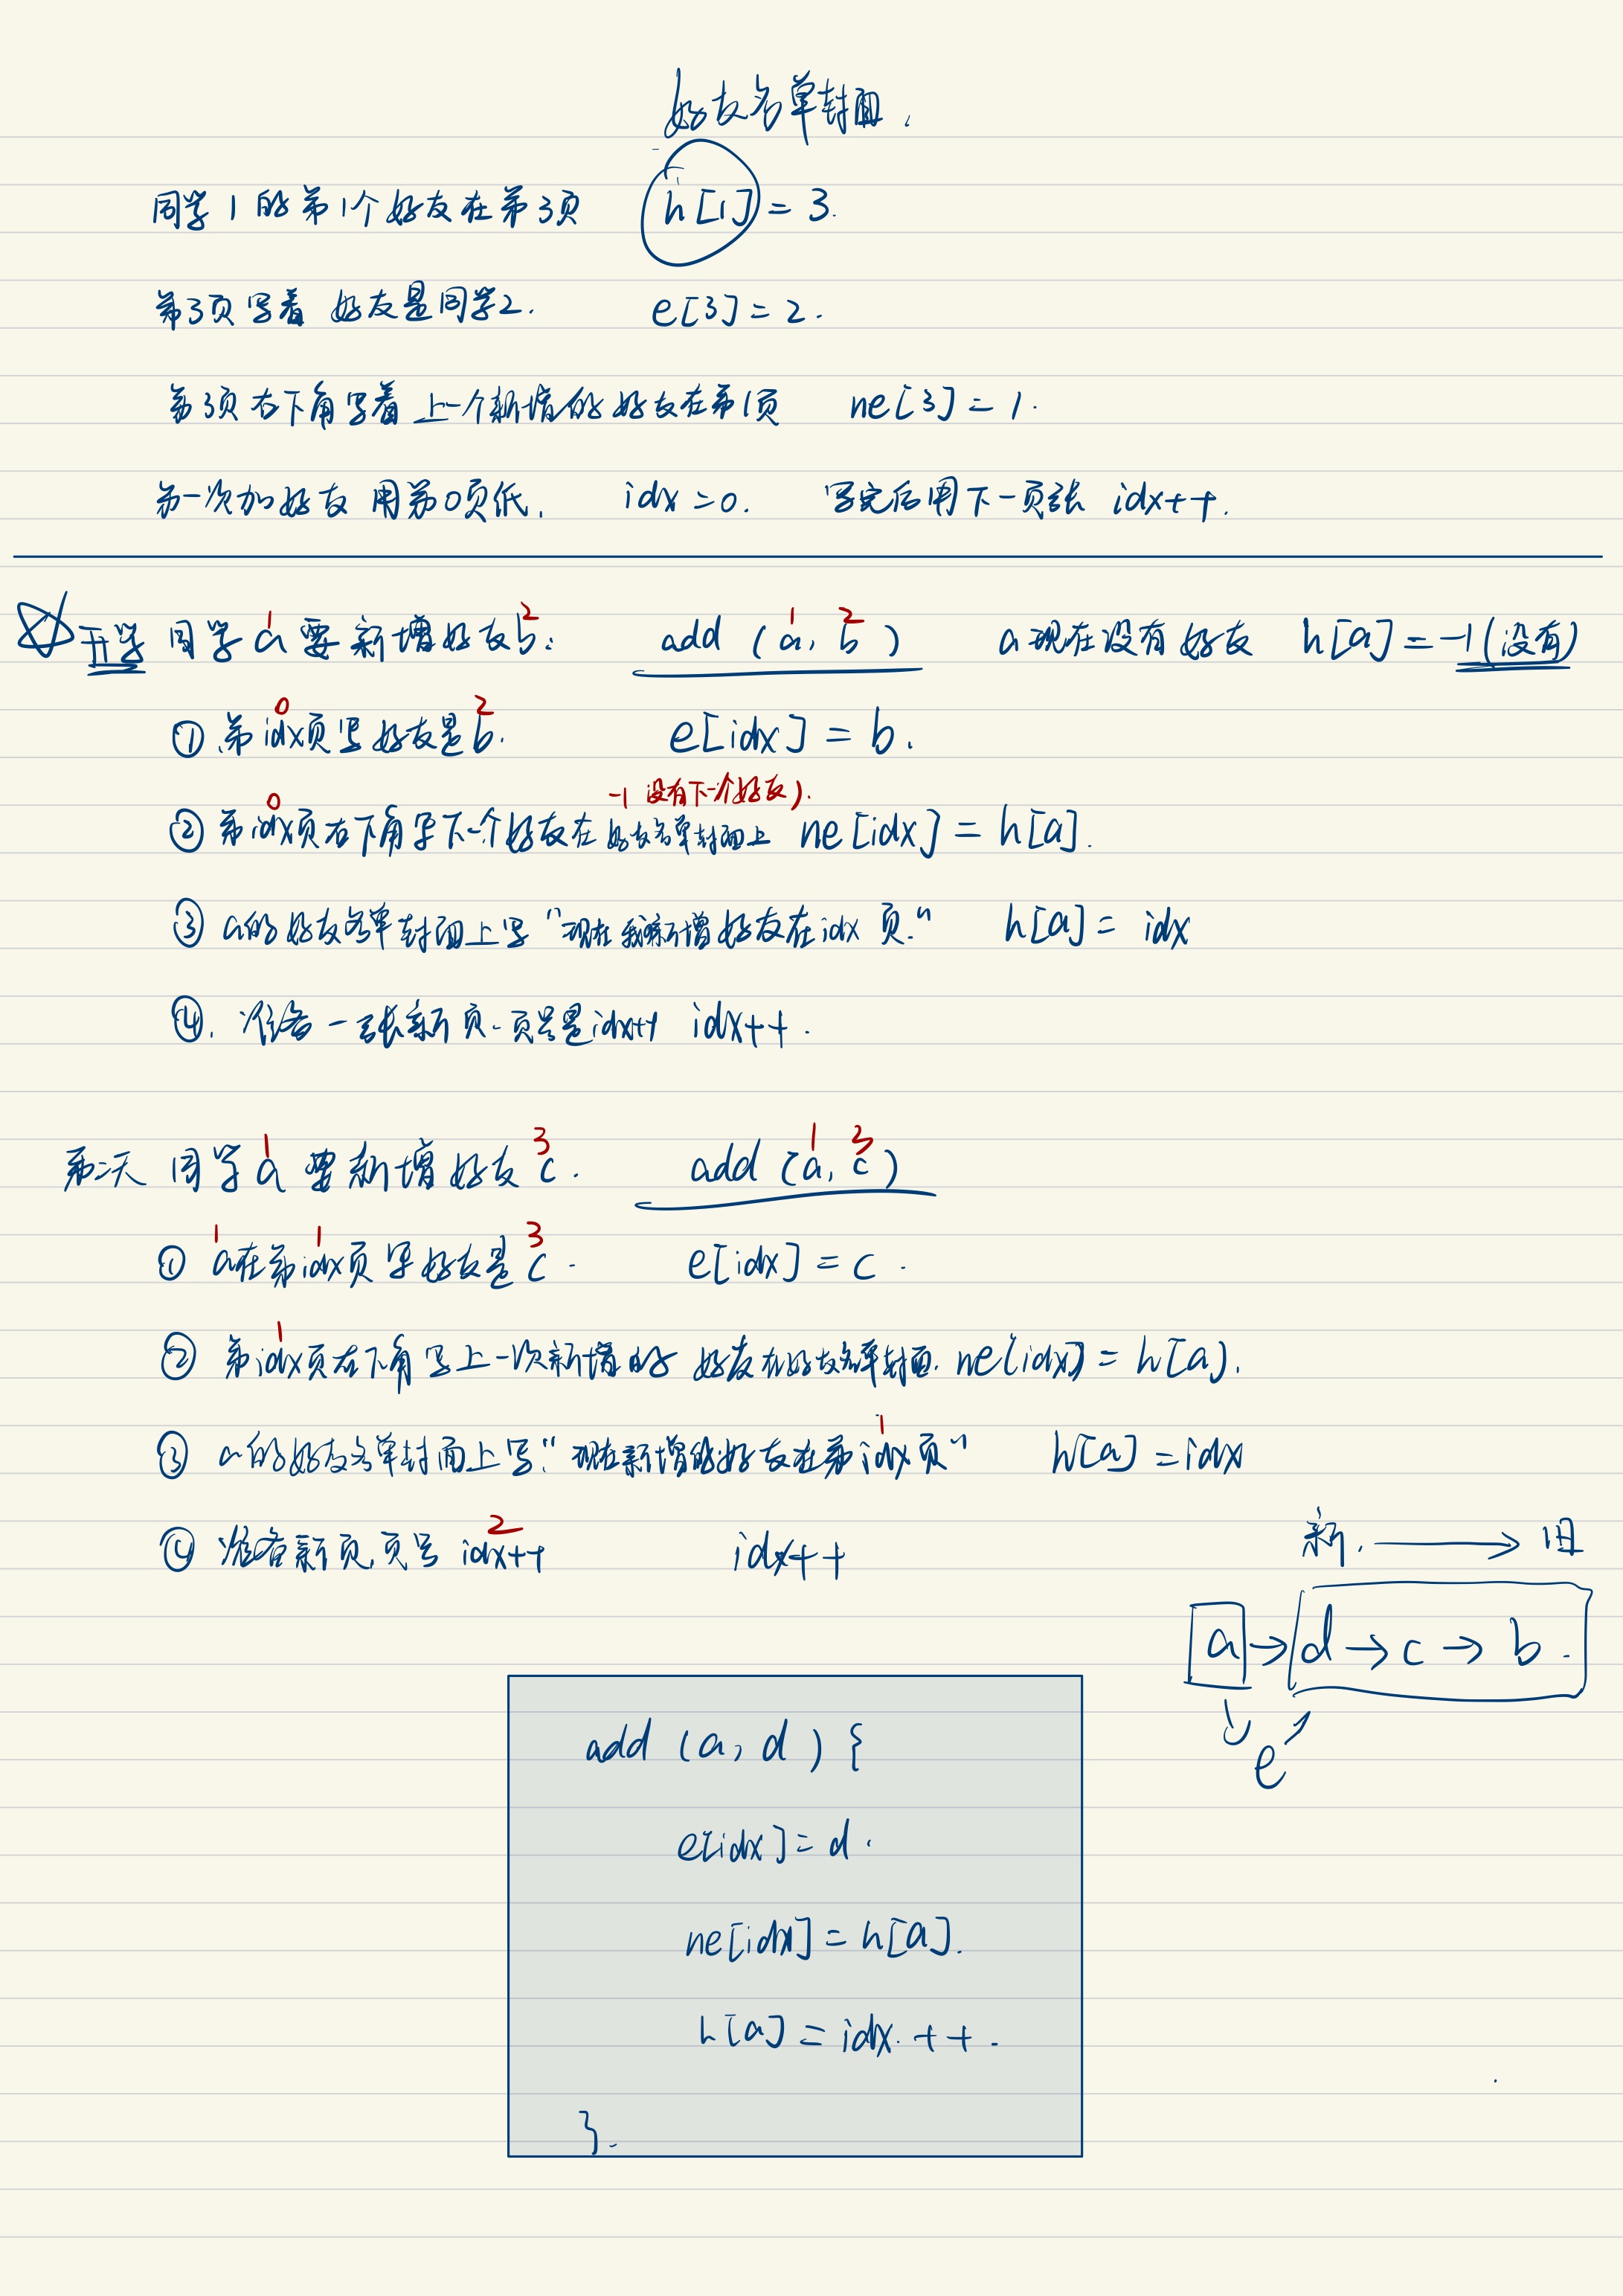 好友名单封面.
同学1的第1个好友在第3页 h[1]=3.
第3页写着 好友是同学2. e[3]=2.
第3页右下角写着上一个新增的好友在第1页 ne[3]=1.
第一次加好友 用第0页纸. idx=0. 写完后用下一页张 idx++.
1 2 1 2
开学 同学a要新增好友b: add (a, b) a现在没有好友 h[a]=-1(没有)
0 2
① 第idx页写好友是b. e[idx]=b.
0 -1 没有下一个好友).
② 第idx页右下角写下一个好友在好友名单封面上 ne[idx]=h[a].
③ a的好友名单封面上写“现在我新增好友在idx页.” h[a]=idx
④. 准备一张新页.页号是idx++ idx++.
1 3 1 3
第二天 同学a要新增好友c. add (a, c)
1 1 3
① a在第idx页写好友是c. e[idx]=c.
1
② 第idx页右下角写上一次新增的好友在好友名单封面. ne[idx]=h[a].
1
③ a的好友名单封面上写:“现在新增的好友在第idx页” h[a]=idx
2
④ 准备新页,页号 idx++ idx++
新. → 旧
a→d→c→b.
e
add (a, d) {
e[idx]=d.
ne[idx]=h[a].
h[a]=idx++.
}.